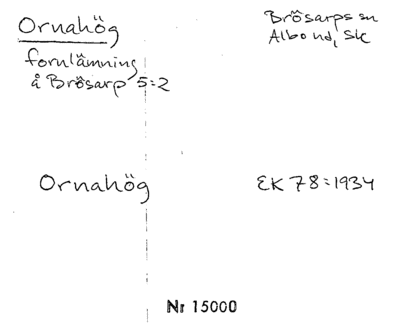 Ornahög
Brösarps sn
Albo hd, Sk
fornlämning
å Brösarp 5:2
Ornahög
EK 78:1934
Nr 15000